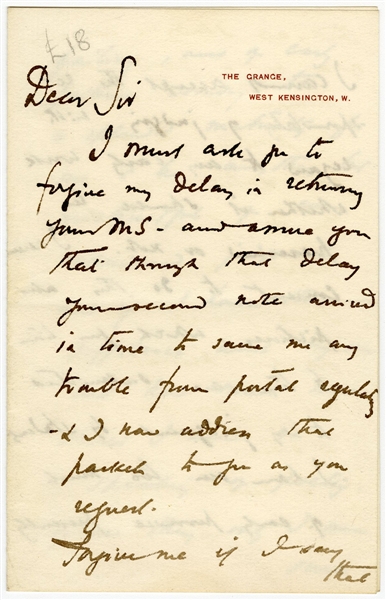 £18
THE GRANGE,
WEST KENSINGTON, W.
Dear Sir
I must ask you to
forgive my delay in returning
your MS - and assure you
that through that delay
your second note arrived
in time to save me any
trouble from postal regularity
- & I now address that
packet to you as you
request.
Forgive me if I say
that